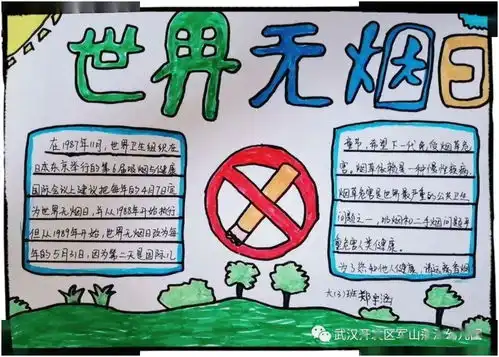 世界无烟日
在1987年11月，世界卫生组织在
日本东京举行的第6届吸烟与健康
国际会议上建议把每年的4月7日定
为世界无烟日，并从1988年开始执行
但从1989年开始，世界无烟日改为每
年的5月31日，因为第二天是国际儿
童节，希望下一代免受烟草危
害。烟草依赖是一种慢性疾病，
烟草危害是世界最严重的公共卫生
问题之一，吸烟和二手烟问题严
重危害人类健康
为了您和他人健康，请远离香烟
大(3)班
武汉开发区军山 幼儿园